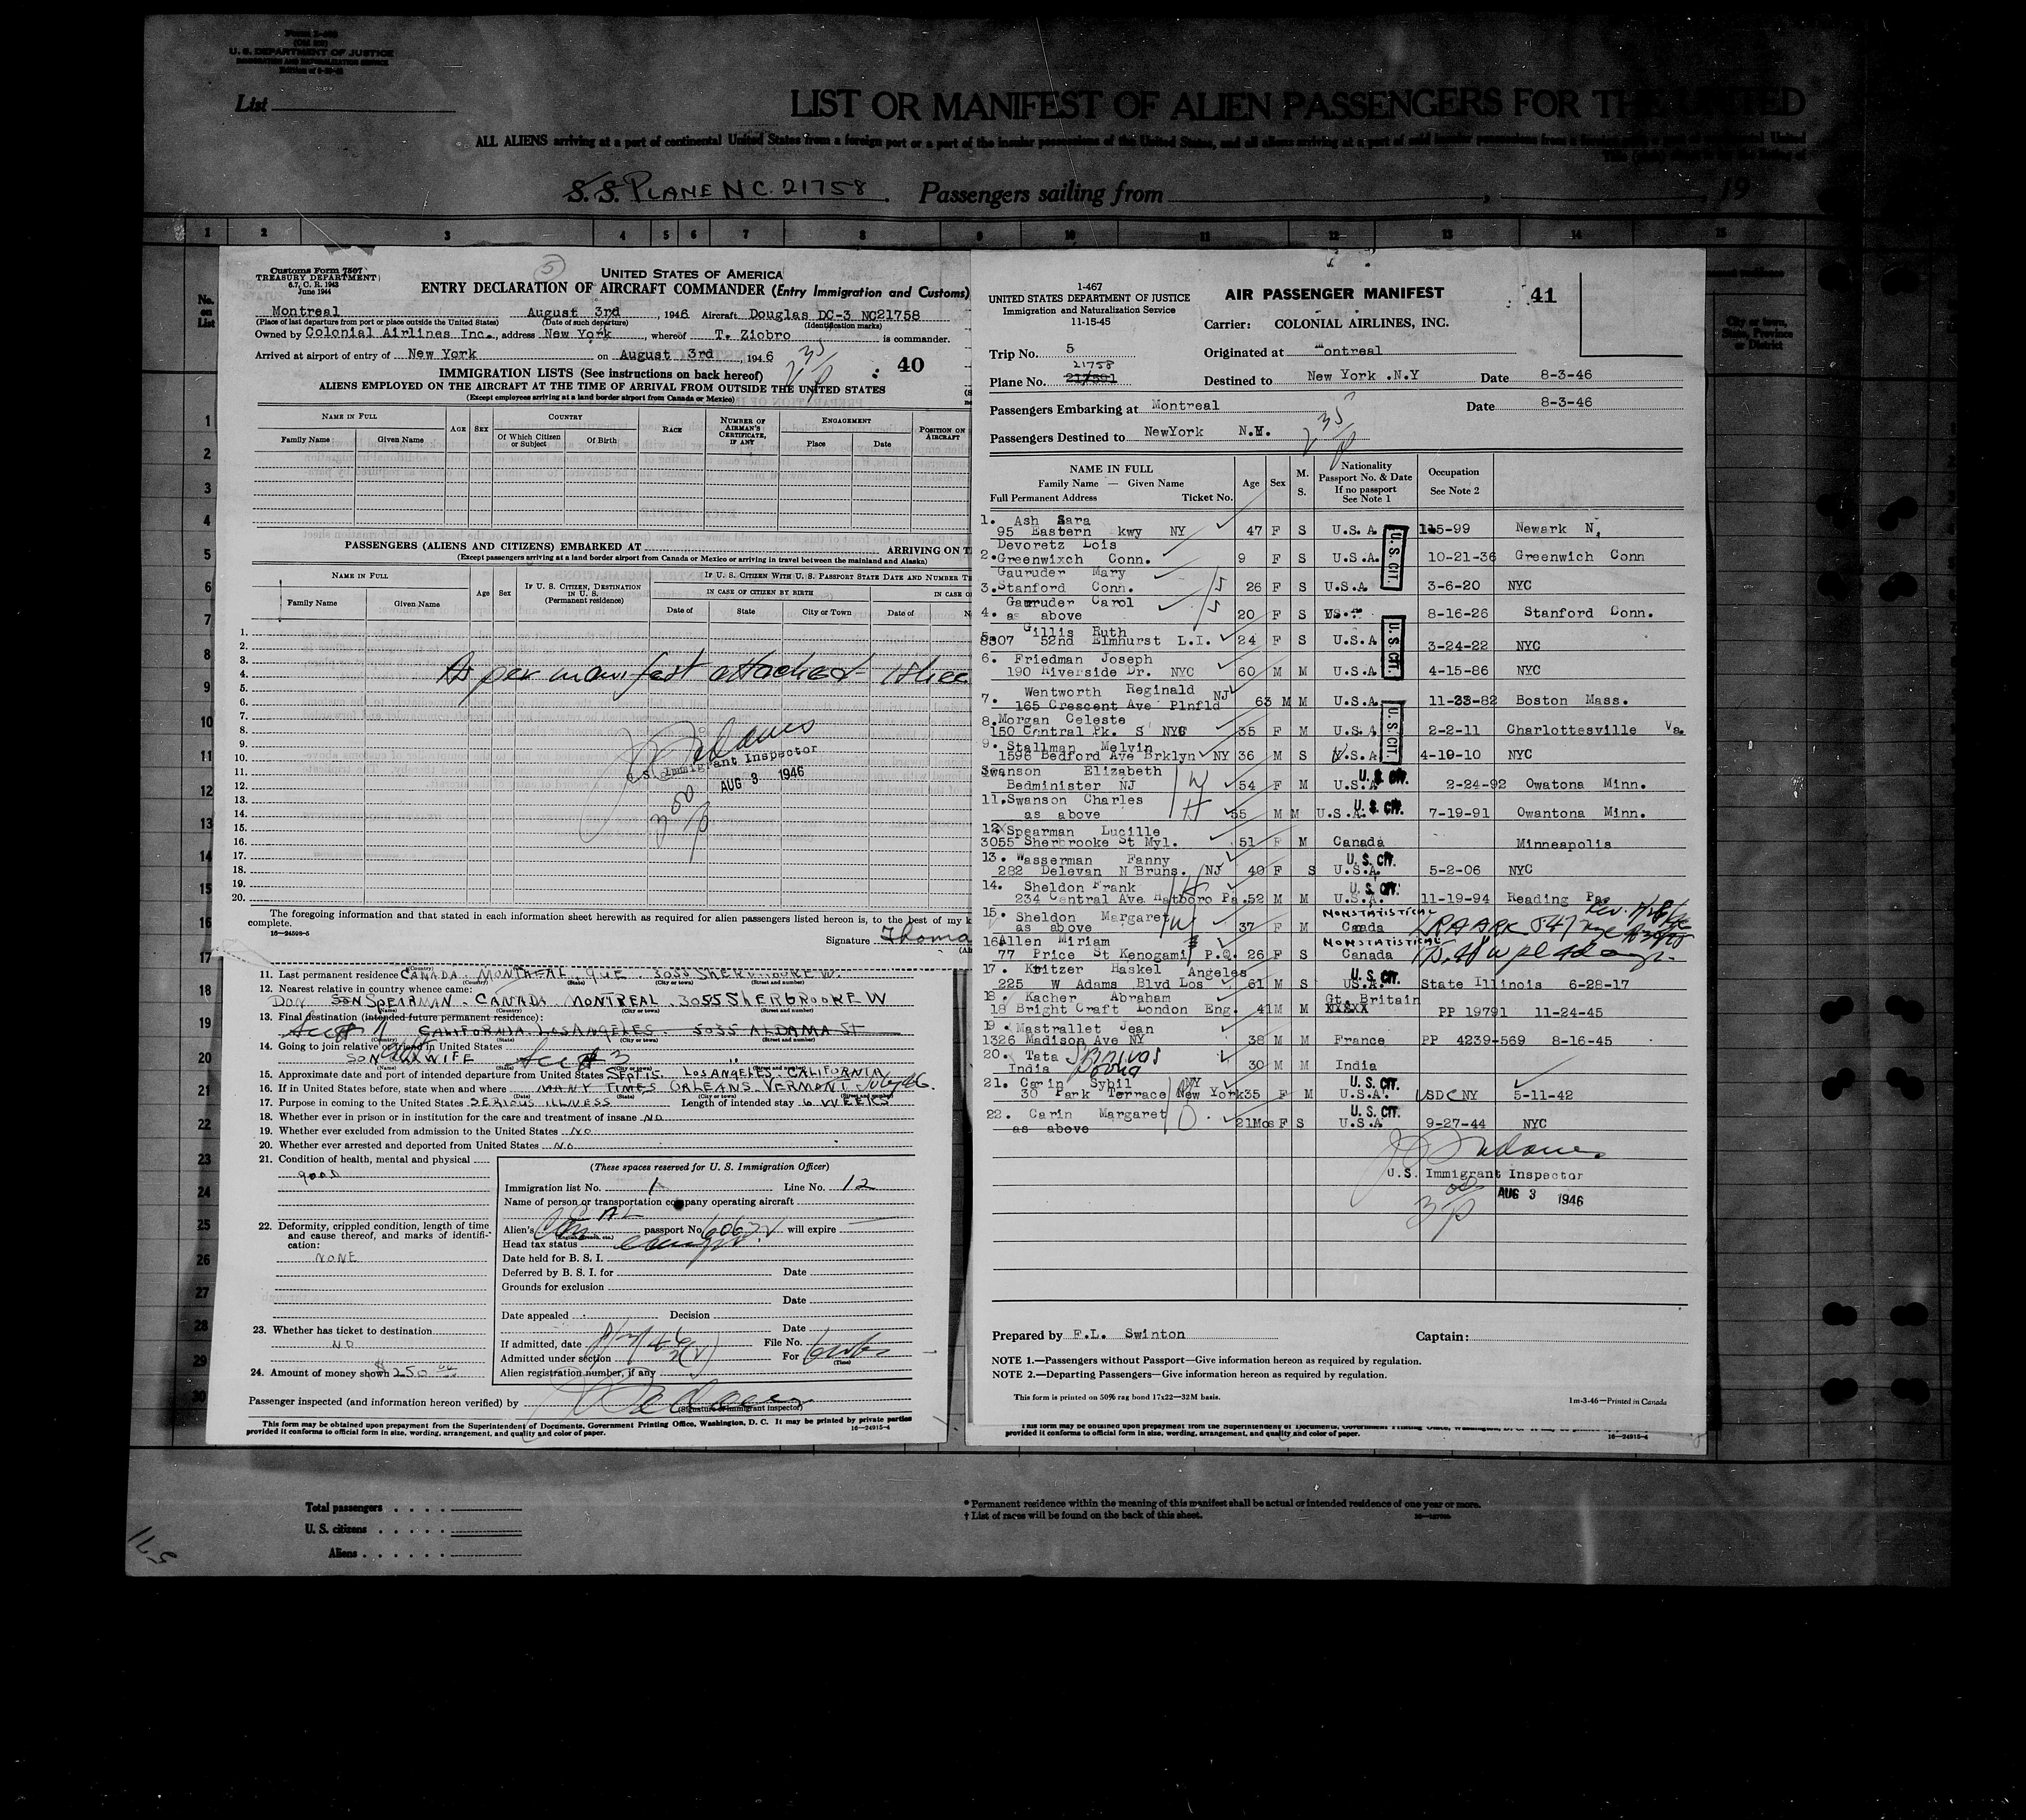 Form I-466
U. S. DEPARTMENT OF JUSTICE
IMMIGRATION AND NATURALIZATION SERVICE
List
LIST OR MANIFEST OF ALIEN PASSENGERS FOR THE UNITED
ALL ALIENS arriving at a port of continental United States from a foreign port or a port of the insular possessions of the United States, and all aliens arriving at a port of said insular possessions from a foreign port
S. S. PLANE NC. 21758. Passengers sailing from , , 19
1 2 3 4 5 6 7 8 9 10 11 12 13 14 15
No. on List
Customs Form 7507
TREASURY DEPARTMENT
6.7, C. R. 1943
June 1944
5
UNITED STATES OF AMERICA
ENTRY DECLARATION OF AIRCRAFT COMMANDER (Entry Immigration and Customs)
Montreal August 3rd, 1946 Aircraft Douglas DC-3 NC21758
(Place of last departure from port or place outside the United States) (Date of such departure) (Identification marks)
Owned by Colonial Airlines Inc., address New York, whereof T. Ziobro is commander.
Arrived at airport of entry of New York on August 3rd, 1946
40
IMMIGRATION LISTS (See instructions on back hereof)
ALIENS EMPLOYED ON THE AIRCRAFT AT THE TIME OF ARRIVAL FROM OUTSIDE THE UNITED STATES
(Except employees arriving at a land border airport from Canada or Mexico)
NAME IN FULL AGE SEX COUNTRY RACE NUMBER OF AIRMAN'S CERTIFICATE, IF ANY ENGAGEMENT POSITION ON AIRCRAFT
Family Name Given Name Of Which Citizen or Subject Of Birth Place Date
PASSENGERS (ALIENS AND CITIZENS) EMBARKED AT ARRIVING ON T
(Except passengers arriving at a land border airport from Canada or Mexico or arriving in travel between the mainland and Alaska)
NAME IN FULL Age Sex IF U. S. CITIZEN, DESTINATION IN U. S. (Permanent residence) IF U. S. CITIZEN WITH U. S. PASSPORT STATE DATE AND NUMBER
IN CASE OF CITIZEN BY BIRTH IN CASE O
Family Name Given Name Date of State City or Town Date of
1.
2.
3.
4.
5.
6.
7.
8.
9.
10.
11.
12.
13.
14.
15.
16.
17.
18.
19.
20.
As per manifest attached - 1 shee
U.S. Immigrant Inspector
AUG 3 1946
The foregoing information and that stated in each information sheet herewith as required for alien passengers listed hereon is, to the best of my k
complete.
16-24598-5
Signature Thoma
11. Last permanent residence CANADA. MONTREAL, QUE. 3055 SHERBROOKE W.
(Country) (State) (City or town) (Street and number)
12. Nearest relative in country whence came:
DON SON SPEARMAN. CANADA. MONTREAL. 3055 SHERBROOKE W
(Name) (Country) (City or town) (Street and number)
13. Final destination (intended future permanent residence):
CALIFORNIA. LOS ANGELES. 5035 ALDAMA ST
(Country) (State) (City or town) (Street and number)
14. Going to join relative or friend in United States
SON WIFE
(Name) (State) (City or town) (Street and number)
15. Approximate date and port of intended departure from United States SEPT 15. LOS ANGELES. CALIFORNIA
16. If in United States before, state when and where MANY TIMES ORLEANS, VERMONT
(Date) (State) (City or town) (Street and number)
17. Purpose in coming to the United States SERIOUS ILLNESS Length of intended stay 6 WEEKS
18. Whether ever in prison or in institution for the care and treatment of insane NO
19. Whether ever excluded from admission to the United States NO
20. Whether ever arrested and deported from United States NO
21. Condition of health, mental and physical
good
22. Deformity, crippled condition, length of time and cause thereof, and marks of identification:
NONE
23. Whether has ticket to destination
NO
24. Amount of money shown $250.00
(These spaces reserved for U. S. Immigration Officer)
Immigration list No. 1 Line No. 12
Name of person or transportation company operating aircraft
Alien's passport No. will expire
Head tax status
Date held for B. S. I.
Deferred by B. S. I. for Date
Grounds for exclusion
Date
Date appealed Decision
Date
If admitted, date File No.
Admitted under section For
(Time)
Alien registration number, if any
Passenger inspected (and information hereon verified) by
(Signature of immigrant inspector)
This form may be obtained upon prepayment from the Superintendent of Documents, Government Printing Office, Washington, D. C. It may be printed by private parties
provided it conforms to official form in size, wording, arrangement, and quality and color of paper.
16-24915-4
I-467
UNITED STATES DEPARTMENT OF JUSTICE
Immigration and Naturalization Service
11-15-45
AIR PASSENGER MANIFEST
41
Carrier: COLONIAL AIRLINES, INC.
Trip No. 5 Originated at Montreal
21758
Plane No. Destined to New York .N.Y Date 8-3-46
Passengers Embarking at Montreal Date 8-3-46
Passengers Destined to NewYork N.Y.
NAME IN FULL
Family Name — Given Name
Full Permanent Address Ticket No.
Age Sex M. S. Nationality Passport No. & Date If no passport See Note 1 Occupation See Note 2
1. Ash Sara
95 Eastern kwy NY 47 F S U.S.A 1-5-99 Newark N,
Devoretz Lois
2. Greenwixch Conn. 9 F S U.S.A. 10-21-36 Greenwich Conn
Gauruder Mary
3. Stanford Conn. 26 F S U.S.A 3-6-20 NYC
Gauruder Carol
4. as above 20 F S US.A 8-16-26 Stanford Conn.
5. Gillis Ruth
8507 52nd Elmhurst L.I. 24 F S U.S.A 3-24-22 NYC
6. Friedman Joseph
190 Riverside Dr. NYC 60 M M U.S.A 4-15-86 NYC
7. Wentworth Reginald NJ
165 Crescent Ave Plnfld 63 M M U.S.A. 11-23-82 Boston Mass.
8. Morgan Celeste
150 Central Pk. S NYC 35 F M U.S.A. 2-2-11 Charlottesville Va.
9. Stallman Melvin
1596 Bedford Ave Brklyn NY 36 M S U.S.A 4-19-10 NYC
Swanson Elizabeth
Bedminister NJ 54 F M U.S.A 2-24-92 Owatona Minn.
11. Swanson Charles
as above 55 M M U.S.A. 7-19-91 Owantona Minn.
12. Spearman Lucille
3055 Sherbrooke St Myl. 51 F M Canada Minneapolis
13. Wasserman Fanny
282 Delevan N Bruns. NJ 40 F S U.S.A. 5-2-06 NYC
14. Sheldon Frank
234 Central Ave Hatboro Pa. 52 M M U.S.A. 11-19-94 Reading Pa.
15. Sheldon Margaret NONSTATISTICAL
as above 37 F M Canada
16. Allen Miriam NONSTATISTICAL
77 Price St Kenogami P.Q. 26 F S Canada
17. Kritzer Haskel Angeles
225 W Adams Blvd Los 61 M S US.A. State Illinois 6-28-17
18. Kacher Abraham Gt. Britain
18 Bright Craft London Eng. 41 M M XXXXX PP 19791 11-24-45
19. Mastrallet Jean
1326 Madison Ave NY 38 M M France PP 4239-569 8-16-45
20. Tata
India 30 M M India
21. Carin Sybil NY
30 Park Terrace New York 35 F M U.S.A. USDC NY 5-11-42
22. Carin Margaret
as above 21Mos F S U.S.A 9-27-44 NYC
U.S. CIT.
U.S. CIT.
U.S. CIT.
U. S. CIT.
U. S. CIT.
U. S. CIT.
U. S. CIT.
U. S. CIT.
U. S. CIT.
U. S. CIT.
U.S. Immigrant Inspector
AUG 3 1946
Prepared by F.L. Swinton Captain:
NOTE 1.—Passengers without Passport—Give information hereon as required by regulation.
NOTE 2.—Departing Passengers—Give information hereon as required by regulation.
This form is printed on 50% rag bond 17x22—32M basis. 1m-3-46—Printed in Canada
This form may be obtained upon prepayment from the Superintendent of Documents, Government Printing Office, Washington,
provided it conforms to official form in size, wording, arrangement, and quality and color of paper.
16-24915-4
1 2 3 4 5 6 7 8 9 10 11 12 13 14 15 16 17 18 19 20 21 22 23 24 25 26 27 28 29 30
City or town, State, Province or District
Total passengers
U. S. citizens
Aliens
* Permanent residence within the meaning of this manifest shall be actual or intended residence of one year or more.
† List of races will be found on the back of this sheet.